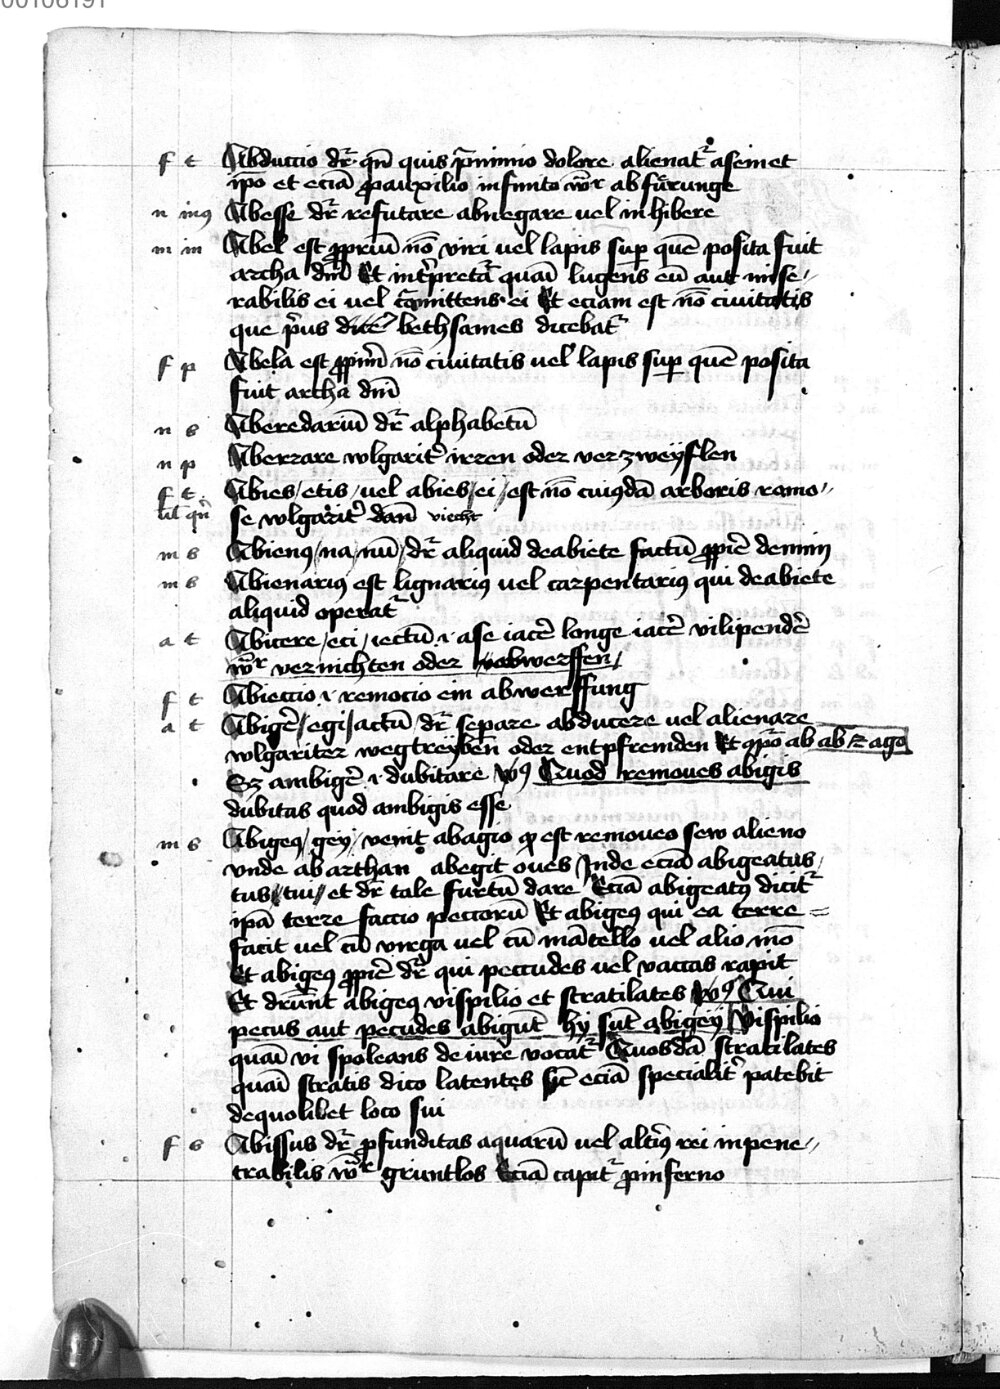 00106191
f t Abduccio dr̄ qn̄ quis p̄ nimio dolore alienat᷑ a semet
ip̄o et eciā p̄ auxilio infinito wr̄ abfürunge
n in9 Abesse dr̄ refutare abnegare uel inhibere
m in Abel est ꝓpriū nō viri uel lapis sup̱ quē posita fuit
archa dn̄i Et int̄pretat᷑ quaſi lugens eū aut mise//
rabilis ei uel com̄ittens ei Et eciam est nō ciuitatis
que p̄us bethsames dicebat᷑
f p Abela est ꝓpriū nō ciuitatis uel lapis sup̱ quē posita
fuit archa dn̄i
n s Abecedariū dr̄ alphabetū
n p Aberrare wlgarit᷑ irren oder verzweÿflen
f t Abies/etis/uel abies/ei/est nō cuiꝰdā arboris ramo//
se wlgarit᷑ dann viecht
m s Abienꝰ/na/nū/dr̄ aliquid de abiete factū
m s Abienariꝰ est lignariꝰ uel carpentariꝰ qui de abiete
aliquid operat᷑
a t Abicere/eci/iectū i a se iacē longe iacē vilipendē
wr̄ vernichten oder abwerffen/
f t Abieccio i remocio ein abwerffung
a t Abigē/egi/actū/dr̄ separe abducere uel alienare
wlgariter wegtreÿben oder entpfremden Et ꝯpō ab ab et ago
Sz ambigē i dubitare vꝰ Quod remoues abigis
dubitas quod ambigis esse
m s Abigeꝰ/gey/venit ab agio qd̄ est remoueo seu alieno
vnde ab arthan abegit oues Inde eciā abigeatus/
tus/tui/et dr̄ tale furtū dare Eciā abigeatꝰ dicit᷑
ip̄a terre faccio peccorū Et abigeꝰ qui ea terre =
facit uel cū virga uel cū mātello uel alio mō
Et abigeꝰ ꝓprie dr̄ qui peccudes uel vaccas rapit
Et dr̄unt abigeꝰ vispilio et stratilates vꝰ Qui
pecus aut pecudes abigūt hÿ sūt abigeÿ Vispilio
quaſi vi spolians de iure vocat᷑ Quosdā stratilates
quaſi stratis dico latentes sic̄ eciā specialit᷑ patebit
de quolibet loco sui
f s Abissus dr̄ ꝓfunditas aquarū uel altiꝰ rei inpene//
trabilis wr̄ gruntlos Eciā capit᷑ ꝓ inferno